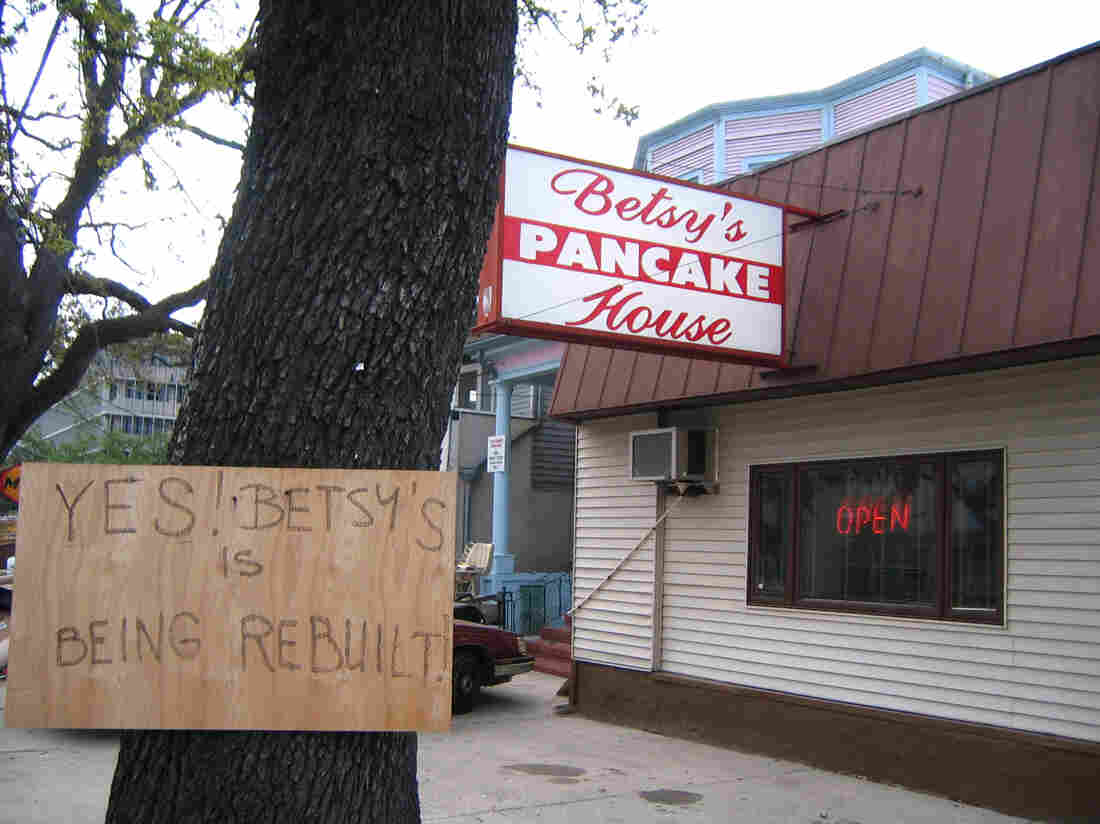 Betsy's
PANCAKE
House
OPEN
YES! BETSY'S
is
BEING REBUILT!